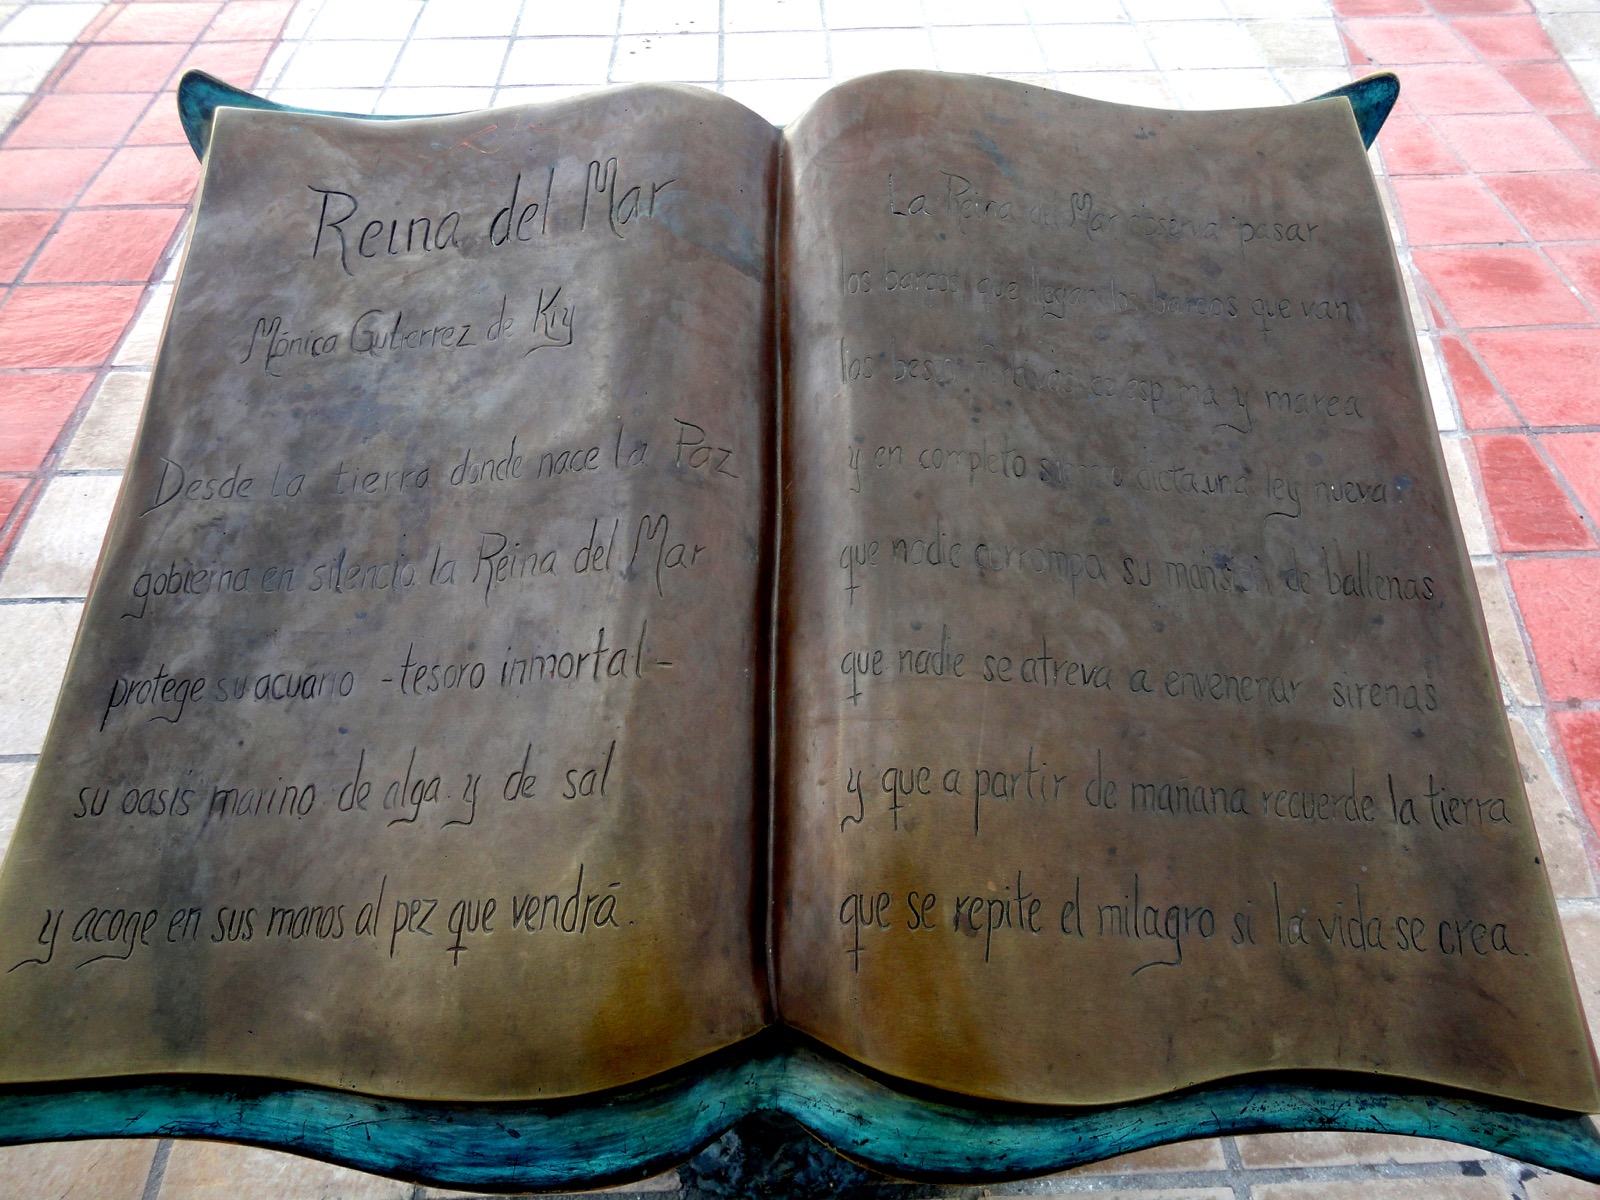 Reina del Mar
Mónica Gutierrez de Kiy
Desde la tierra donde nace la Paz
gobierna en silencio la Reina del Mar
protege su acuario - tesoro inmortal -
su oasis marino de alga y de sal
y acoge en sus manos al pez que vendrá.
La Reina del Mar observa pasar
los barcos que llegan los barcos que van
los besos furtivos de espuma y marea
y en completo dicta una ley nueva:
que nadie corrompa su mansión de ballenas,
que nadie se atreva a envenenar sirenas
y que a partir de mañana recuerde la tierra
que se repite el milagro si la vida se crea.